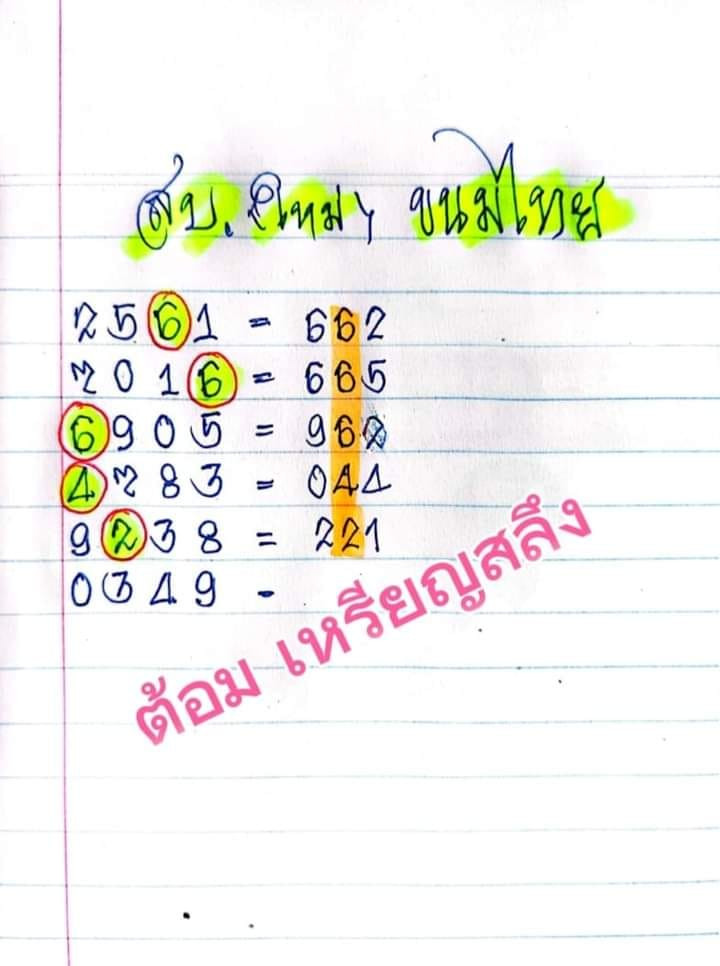 สบ. ใหม่ๆ ขนมไทย
2561 = 662
7016 = 665
6905 = 962
4783 = 044
9238 = 221
0349 -
ต้อม เหรียญสลึง